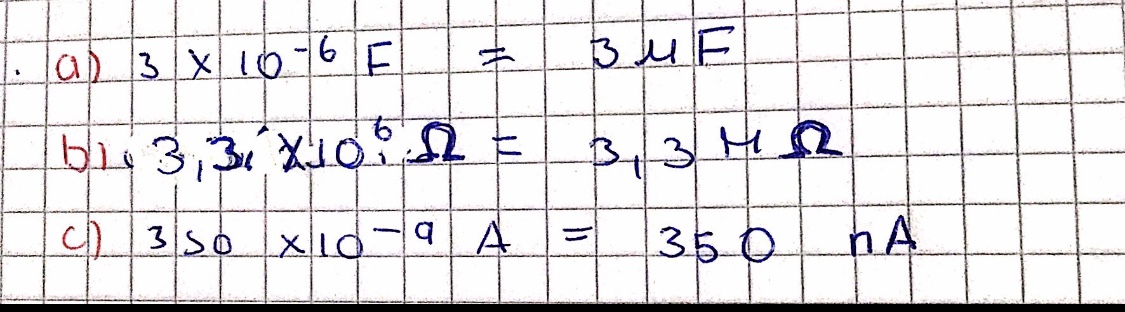 a) 3 × 10⁻⁶ F = 3 μF
b) 3,3 × 10⁶ Ω = 3,3 M Ω
c) 350 × 10⁻⁹ A = 350 nA